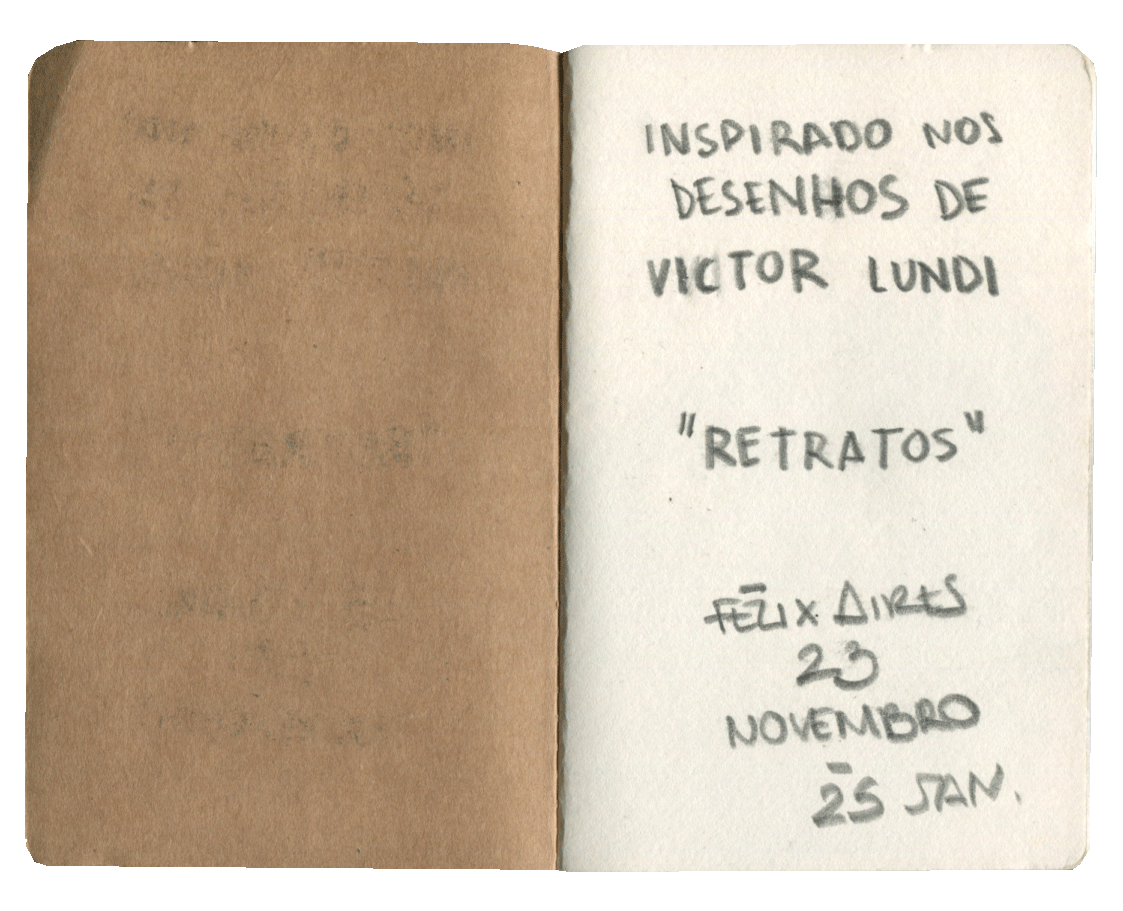 INSPIRADO NOS
DESENHOS DE
VICTOR LUNDI
"RETRATOS"
FÉLIX AIRES
23
NOVEMBRO
25 JAN.